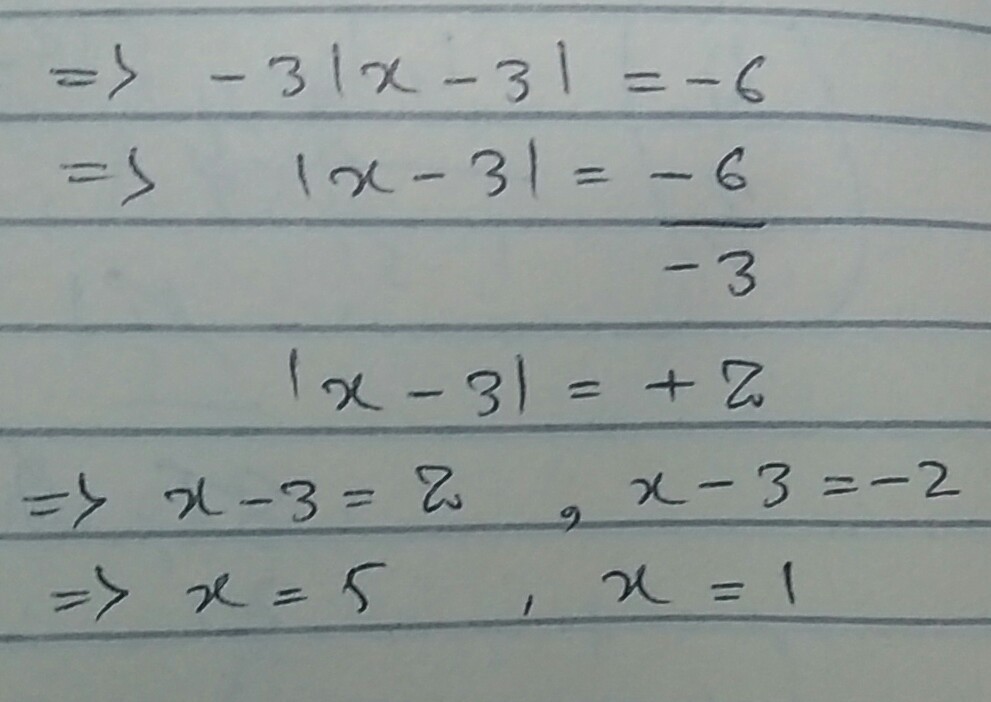 => -3|x-3| = -6
=> |x-3| = -6
-3
|x-3| = +2
=> x-3 = 2 , x-3 = -2
=> x = 5 , x = 1